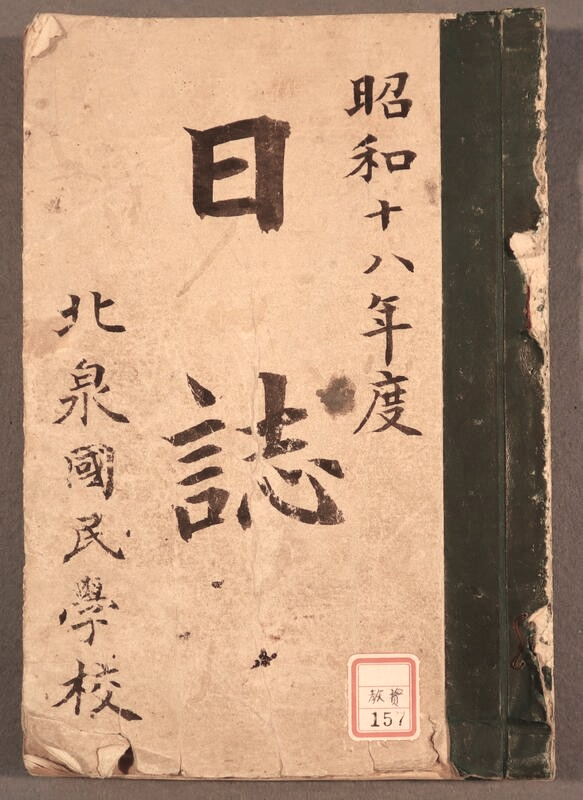 昭和十八年度
日誌
北泉國民學校
教資
157